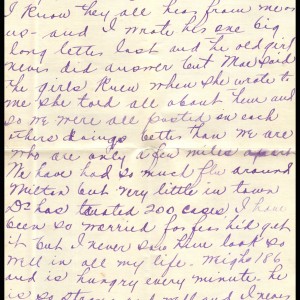 I know they all hear from me or
us and I wrote his one big
long letter last and the old girl
never did answer but Mae said
the girls knew when she wrote to
me she told all about them and
so we were all posted on each
others doings better than we are
who are only a few miles apart
We have had so much flu around
Milton but very little in town
Dr has treated 200 cases I have
been so worried for fear he'd get
it but I never saw him look so
well in all my life. Weighs 186
and is hungry every minute. he
is so strong and well and I mean